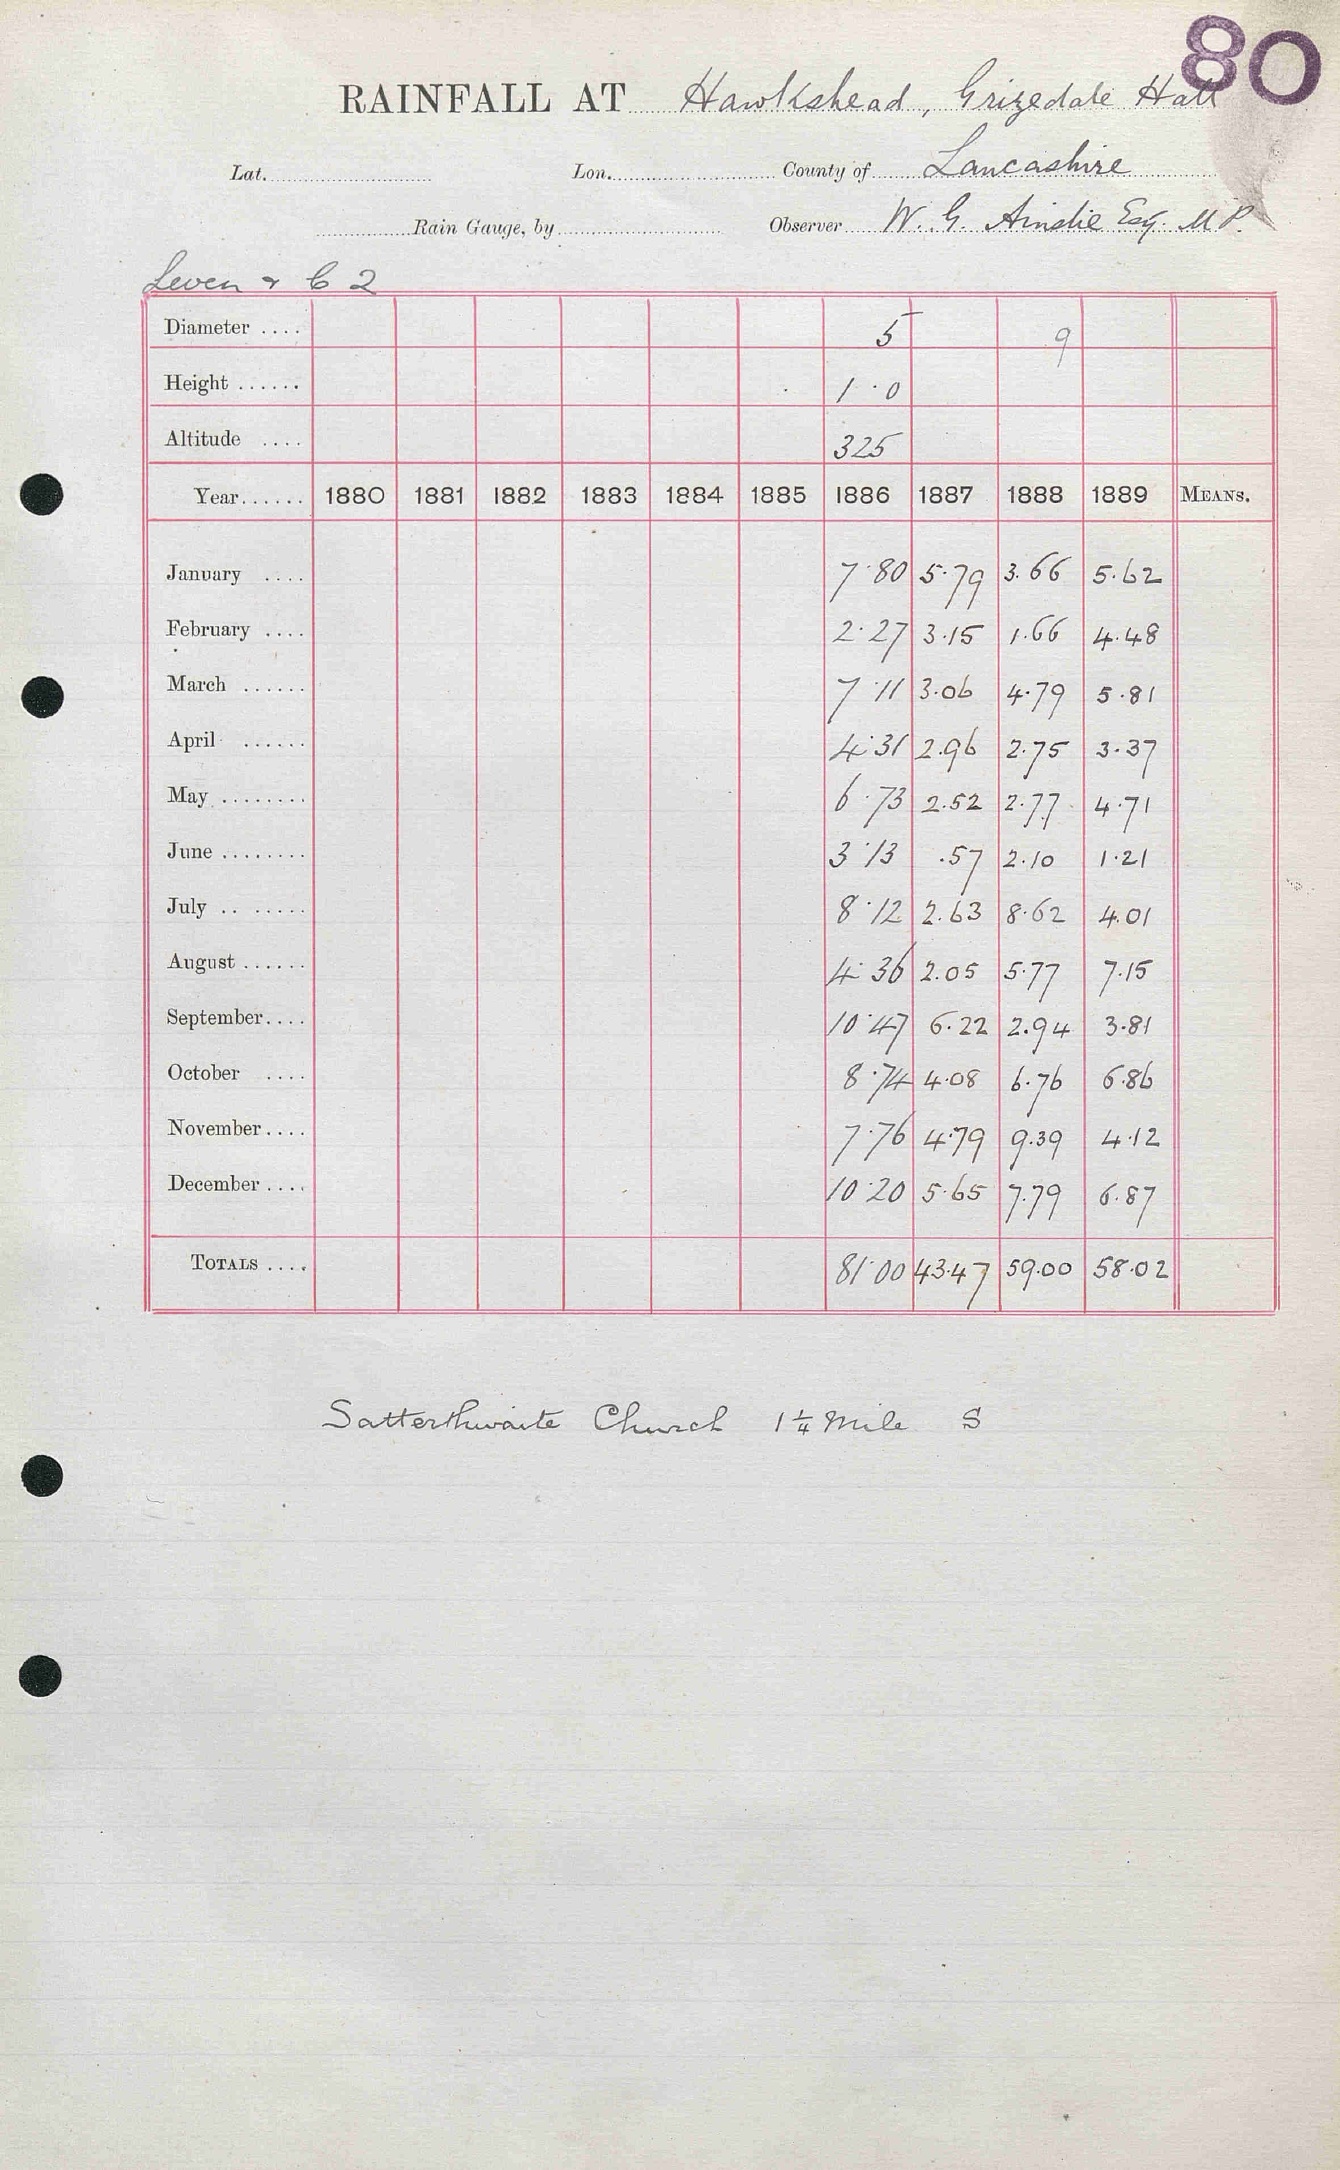 80
RAINFALL AT Hawkshead, Grizedale Hall
Lat. Lon. County of Lancashire
Rain Gauge, by Observer W. G. Ainslie Esq. M P.
Leven & C 2
Diameter .... 5 9
Height ...... 1 · 0
Altitude .... 325
Year...... 1880 1881 1882 1883 1884 1885 1886 1887 1888 1889 MEANS.
January .... 7·80 5·79 3.66 5.62
February .... 2·27 3·15 1.66 4.48
March ...... 7·11 3.06 4·79 5·81
April ...... 4·31 2.96 2.75 3·37
May ........ 6·73 2.52 2·77 4·71
June ........ 3·13 .57 2·10 1·21
July .. ..... 8·12 2.63 8·62 4.01
August ...... 4·36 2.05 5·77 7·15
September.... 10·47 6.22 2.94 3.81
October .... 8·74 4·08 6·76 6·86
November.... 7·76 4·79 9.39 4·12
December .... 10·20 5·65 7.79 6·87
TOTALS .... 81·00 43·47 59.00 58·02
Satterthwaite Church 1¼ Mile S